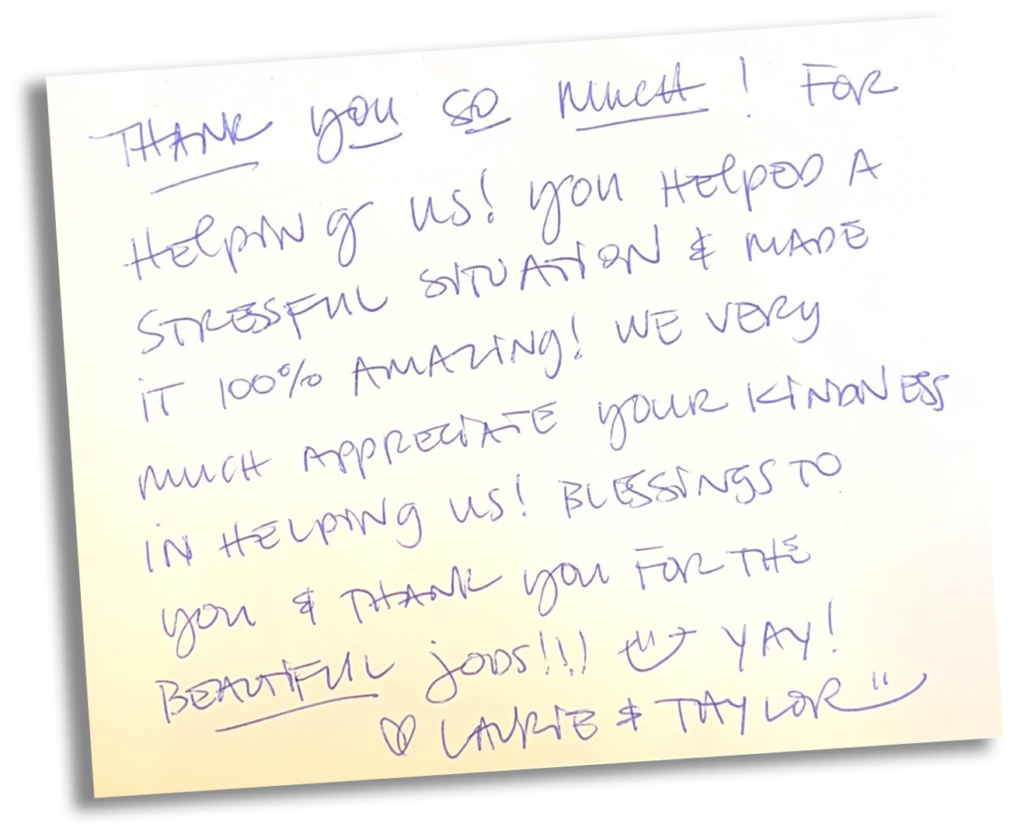 THANK YOU SO MUCH! FOR
HELPING US! YOU HELPED A
STRESSFUL SITUATION & MADE
IT 100% AMAZING! WE VERY
MUCH APPRECIATE YOUR KINDNESS
IN HELPING US! BLESSINGS TO
YOU & THANK YOU FOR THE
BEAUTIFUL JOBS!!! YAY!
♡ LAURIE & TAYLOR